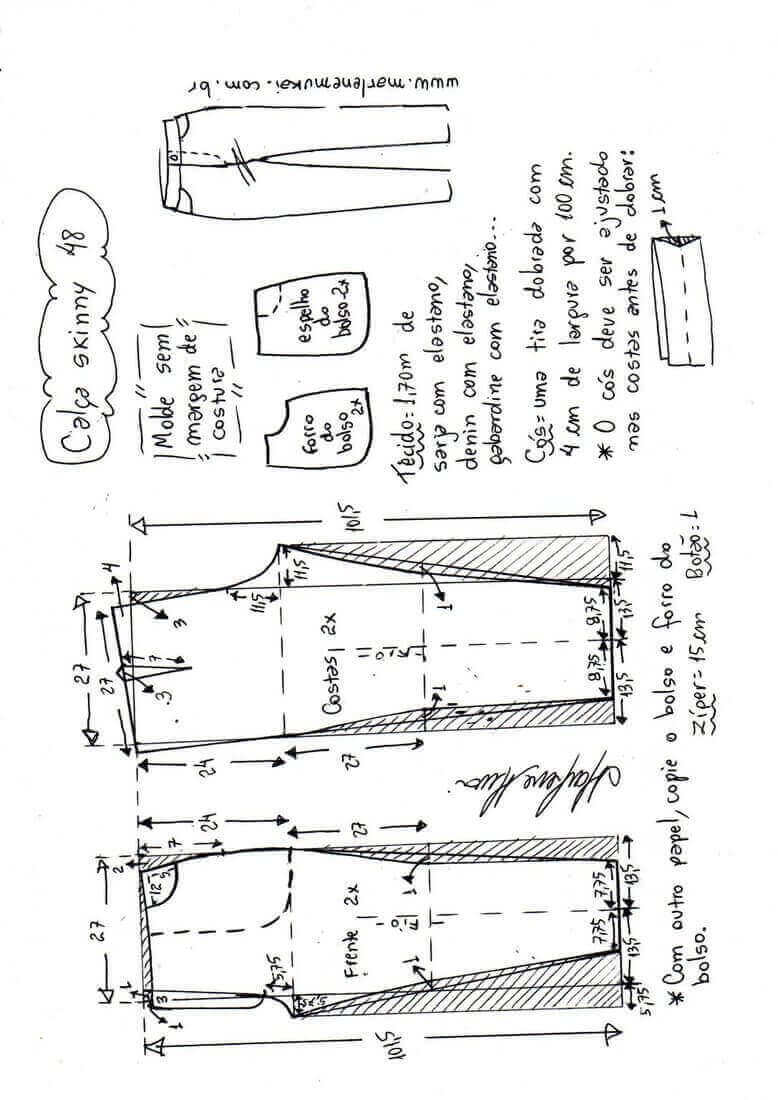 Calça skinny 48
Molde sem
margem de
costura
forro
do
bolso
2x
espelho
do
bolso-2x
www.marlenemukai.com.br
Tecido=1,70m de
sarja com elastano,
denin com elastano,
gabardine com elastano...
Cós=uma tira dobrada com
4 cm de largura por 100 cm.
* O cós deve ser ajustado
nas costas antes de dobrar:
1cm
27
27
4
3
7
3
24
27
11,5
11,5
101,5
Costas 2x
fio
1
1
8,75
8,75
13,5
13,5
11,5
27
2
7
12
5
1
3
1
24
27
5,75
101,5
Frente 2x
fio
1
1
7,75
7,75
5,75
13,5
13,5
* Com outro papel, copie o bolso e forro do
bolso.
Zíper=15cm Botão=1